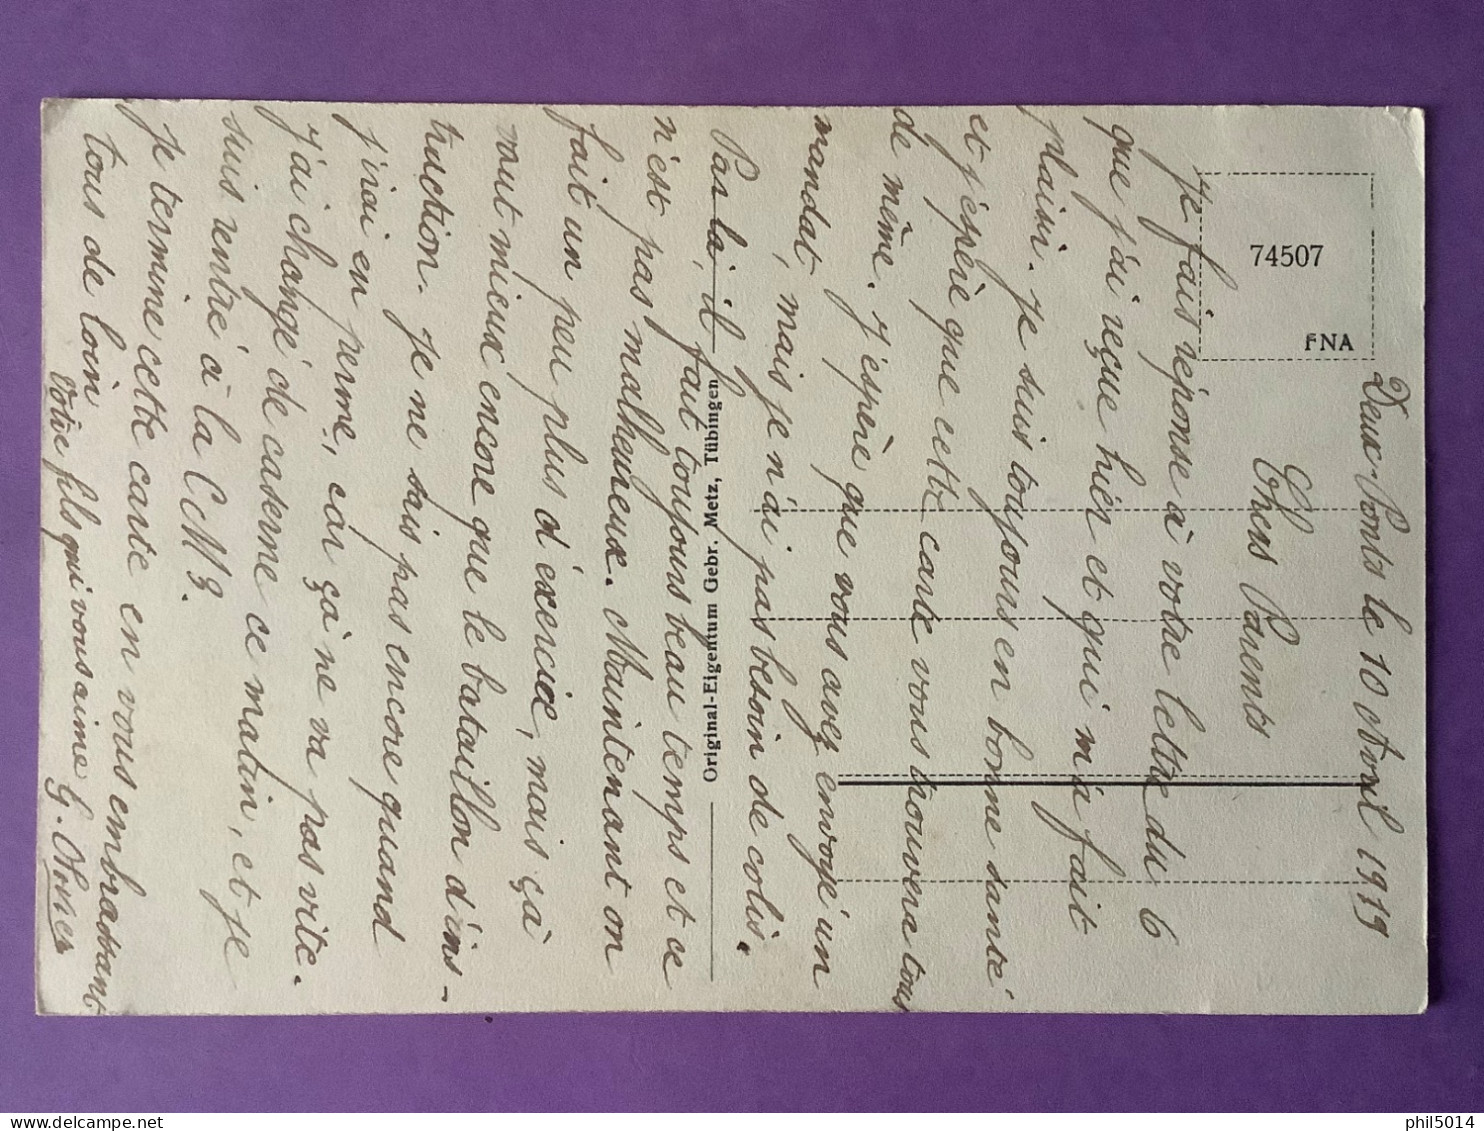 Deux-Ponts le 10 Avril 1919
Chers Parents
Je fais réponse à votre lettre du 6
que j'ai reçue hier et qui m'a fait
plaisir. Je suis toujours en bonne santé
et j'espère que cette carte vous trouvera tous
de même. J'espère que vous avez envoyé un
mandat, mais je n'ai pas besoin de colis.
Par là, il faut toujours beau temps et ce
n'est pas malheureux. Maintenant on
fait un peu plus d'éxercice, mais çà
vaut mieux encore que le bataillon d'ins-
truction. Je ne sais pas encore quand
j'irai en perme, car çà ne va pas vite.
J'ai changé de caserne ce matin, et je
suis rentré à la CM3.
Je termine cette carte en vous embrassant
tous de loin
Votre fils qui vous aime G.
74507
FNA
Original-Eigentum Gebr. Metz, Tübingen
phil5014